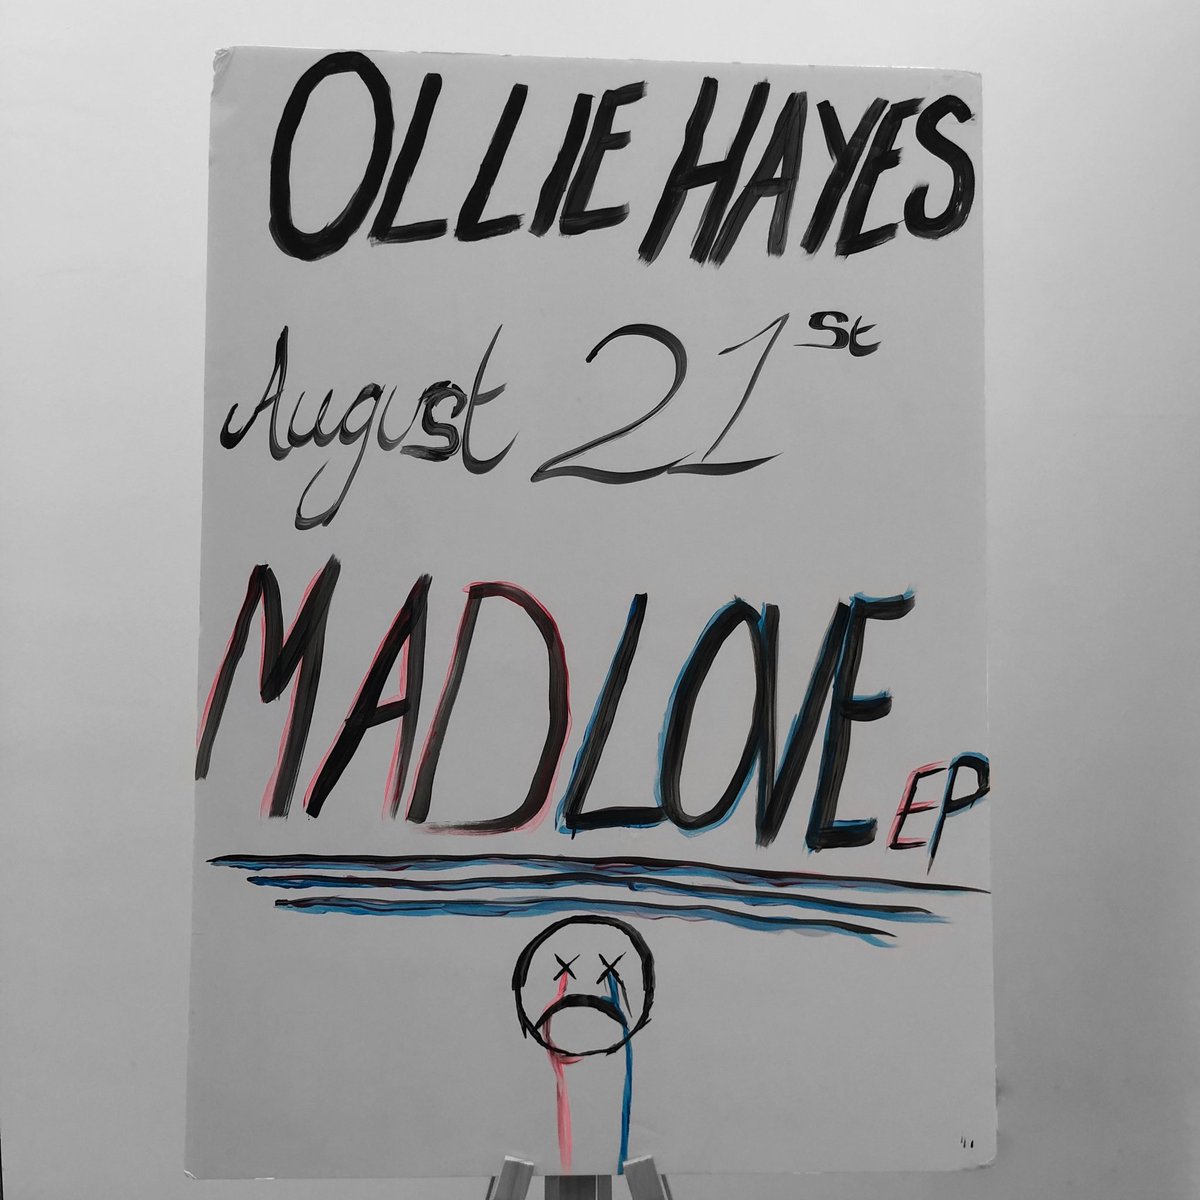 OLLIE HAYES
August 21st
MAD LOVE EP